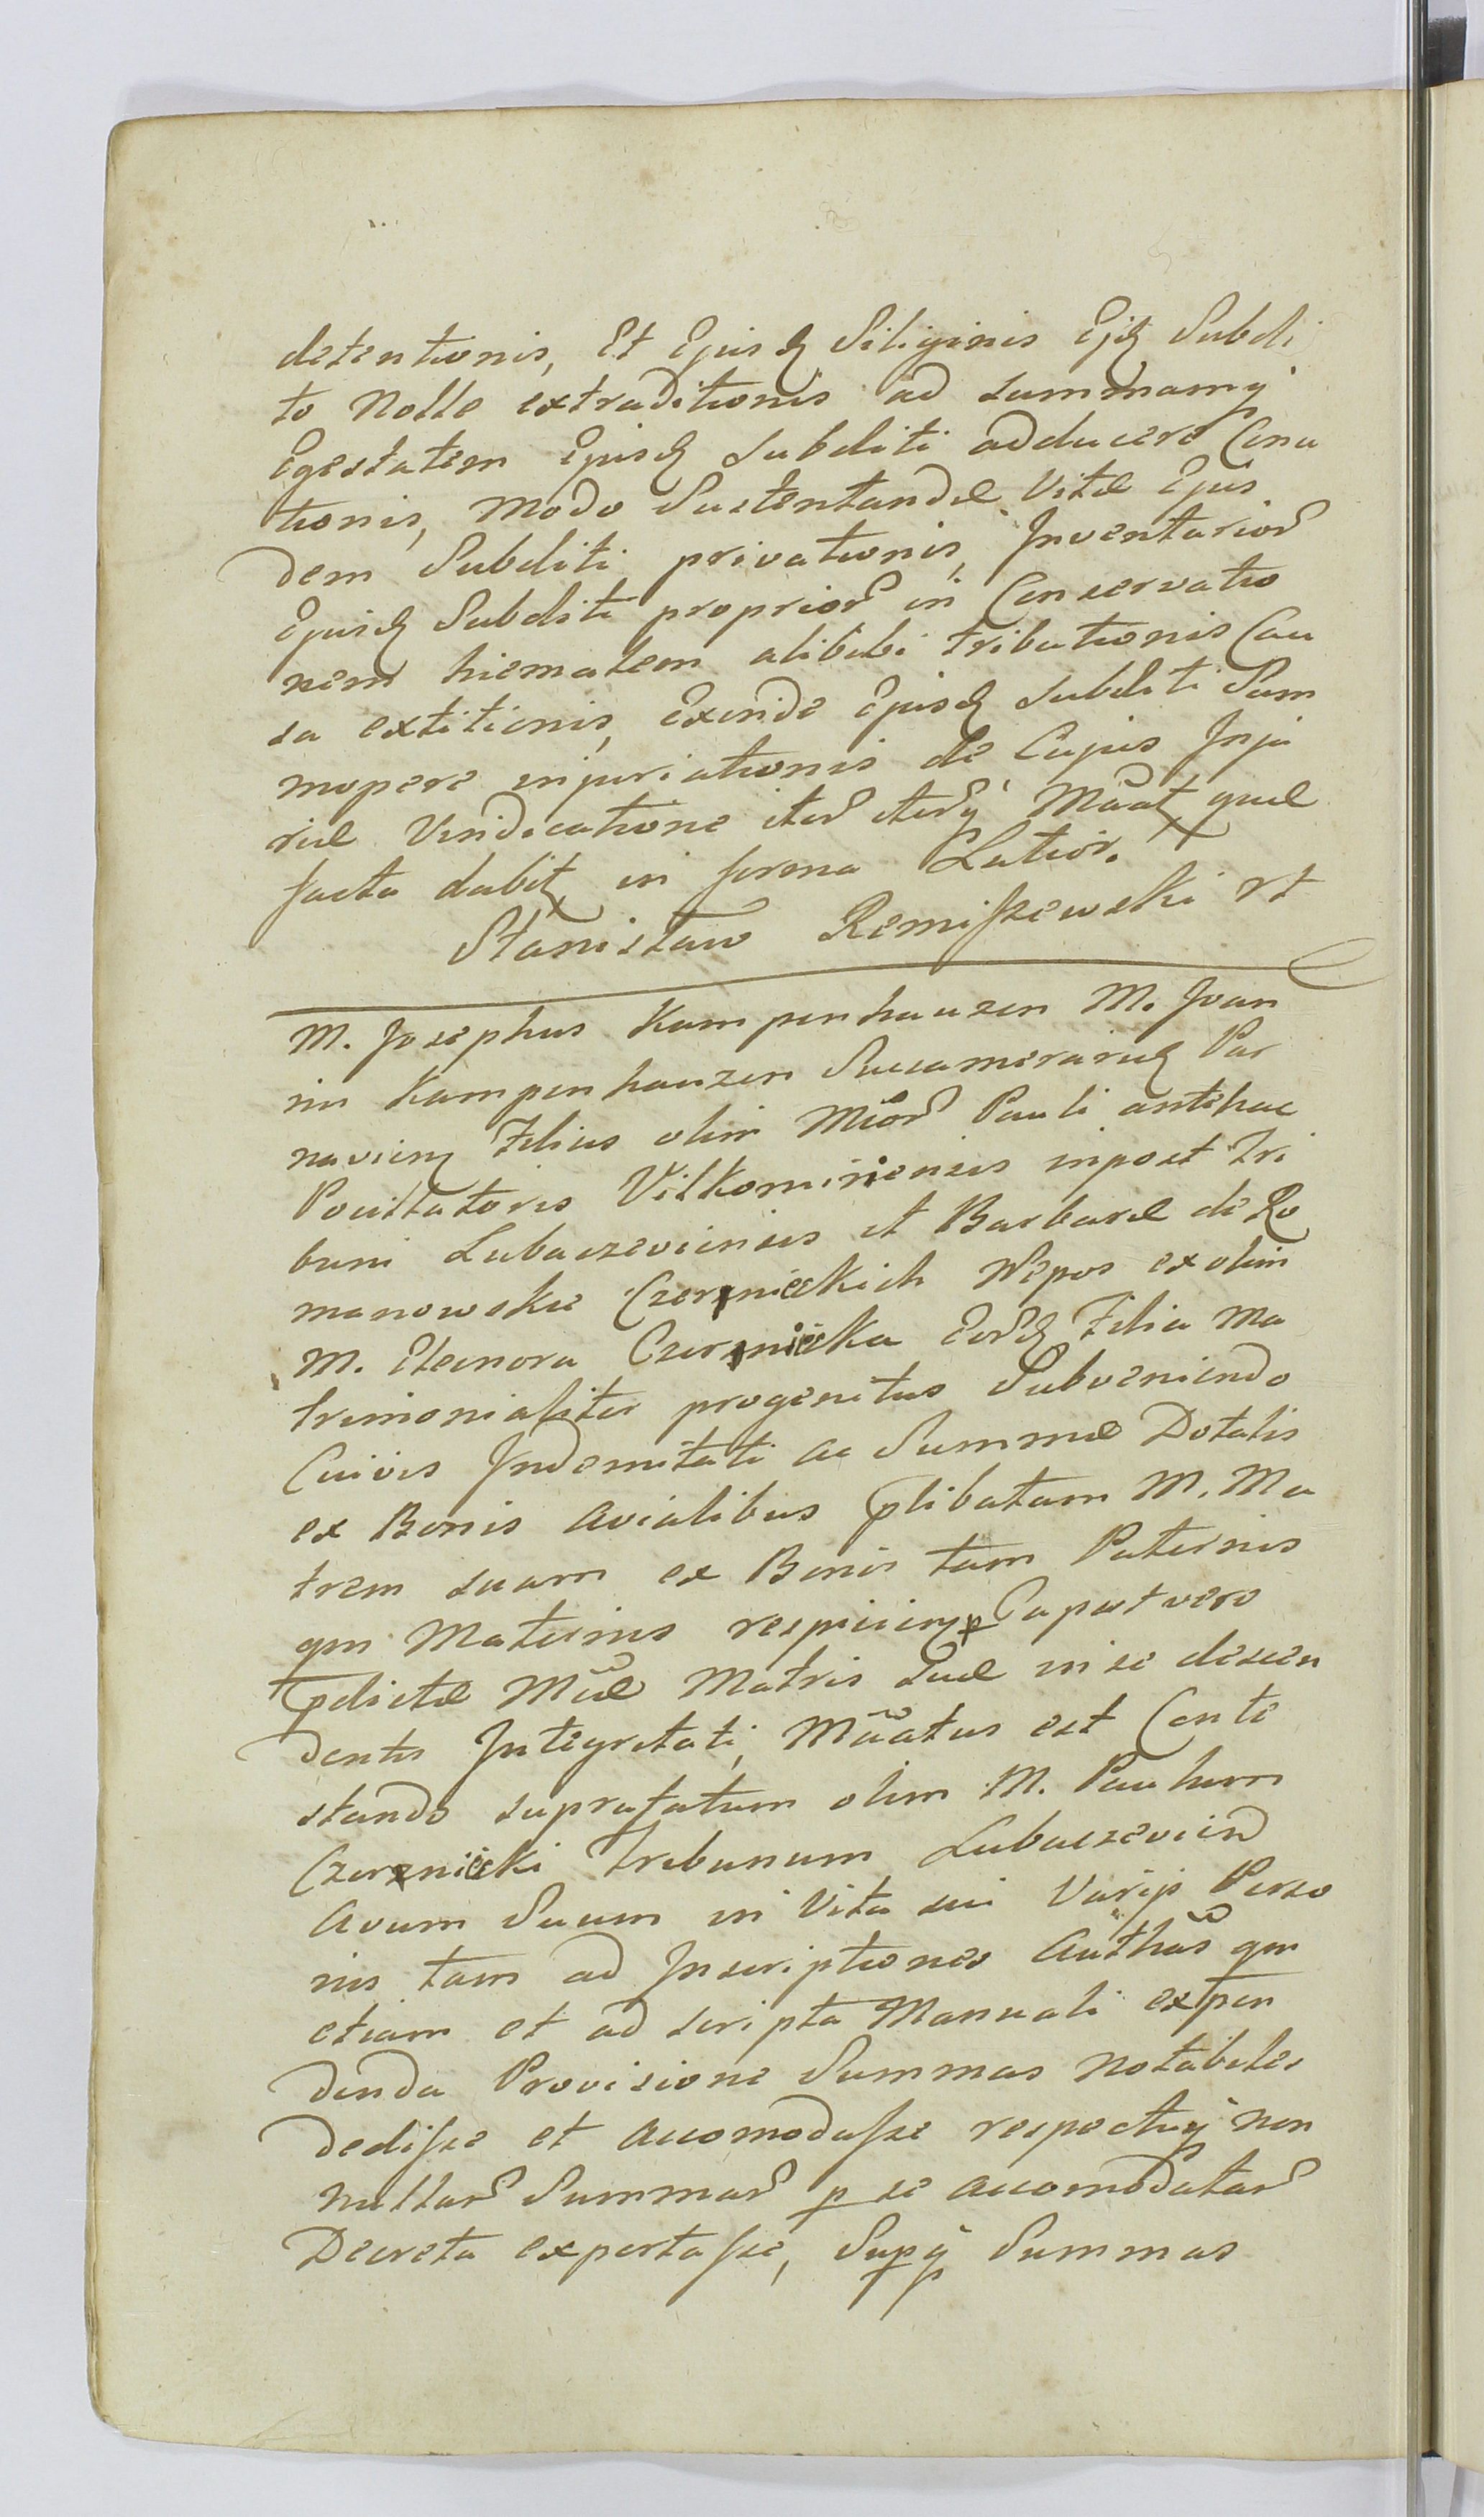 detentionis, Et Ejusq Siliginis Ejq Subdi
to Nolle extraditionis ad summamq
Egestatem Ejusq Subditi adducere Cona
tionis, Modo Sustentandæ Vitæ Ejus
dem Subditi privationis, Inventarior
Ejusq Subditi proprior in Conservatio
nem hiemalem alibibi tributionis Cau
sa extitionis, Exinde Ejusq Subditi Sum
mopere injuriationis de Cujus Inju
riæ Vindicatione iter iterq Maat, quæ
facta dabit, in forma Latior.
Stanisław Remiszewski rt
M. Josephus Kampenhauzen M. Joan
nis Kampenhauzen Succamerariq Par
navien Filius olim Mcor Pauli antehac
Pocillatoris Vilkomiriensis inpost Tri
buni Lubaczoviensis et Barbaræ de Ro
manowskie Czermickich Nepos ex olim
M. Eleonora Czermicka Eorq Filia Ma
trimonialiter progenitus Subveniendo
Cuivis Indemitati ac Summæ Dotalis
ex Bonis avialibus plibatam M. Ma
trem suam ex Bonis tam Paternis
qm Maternis respicien Capost vero
pdictæ Mcæ Matris Suæ in se descen
dentis Integritati, Maatus est Conte
stando suprafatum olim M. Paulum
Czermicki Tribunum Lubaczovien
avum Suum in Vita sui Varijs Perso
nis tam ad Inscriptiones Authas qm
etiam et ad scripta Manuali expen
denda Provisione Summas notabiles
dedisse et accomodasse respectuq non
nullar Summar p se accomodatar
Decreta exportasse, Supq Summas